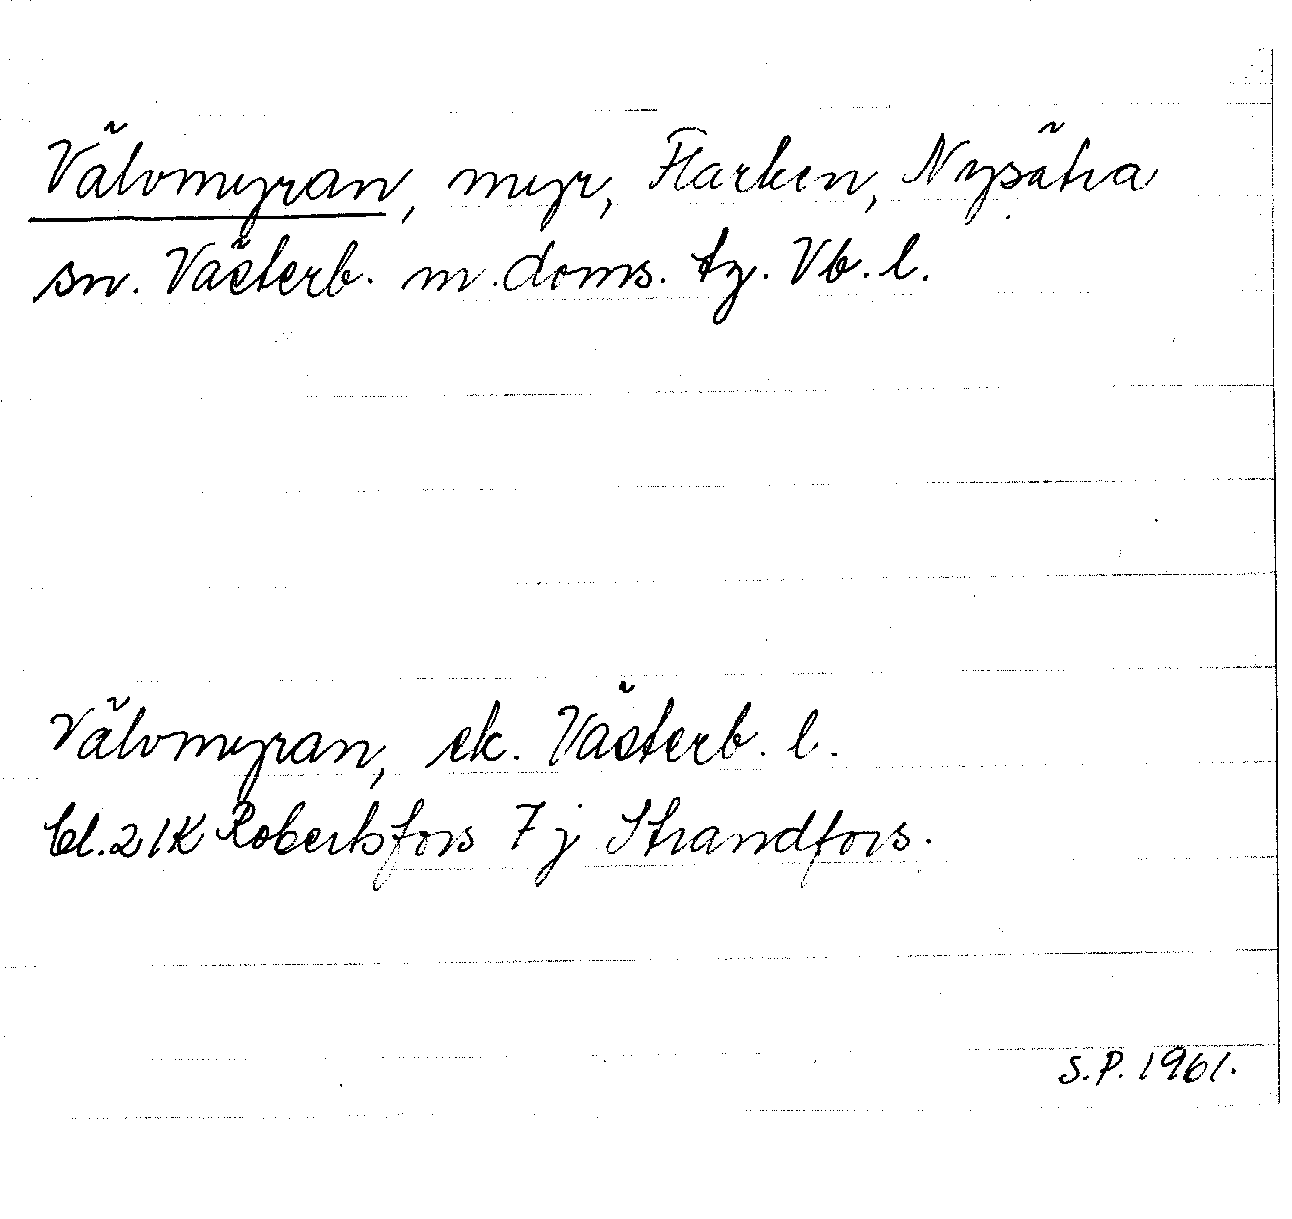 Välvmyran, myr, Flarken, Nysätra
sn. Västerb. m. doms. tg. Vb. l.
Välvmyran, ek. Västerb. l.
bl. 21K Robertsfors 7j Strandfors.
S.P. 1961.